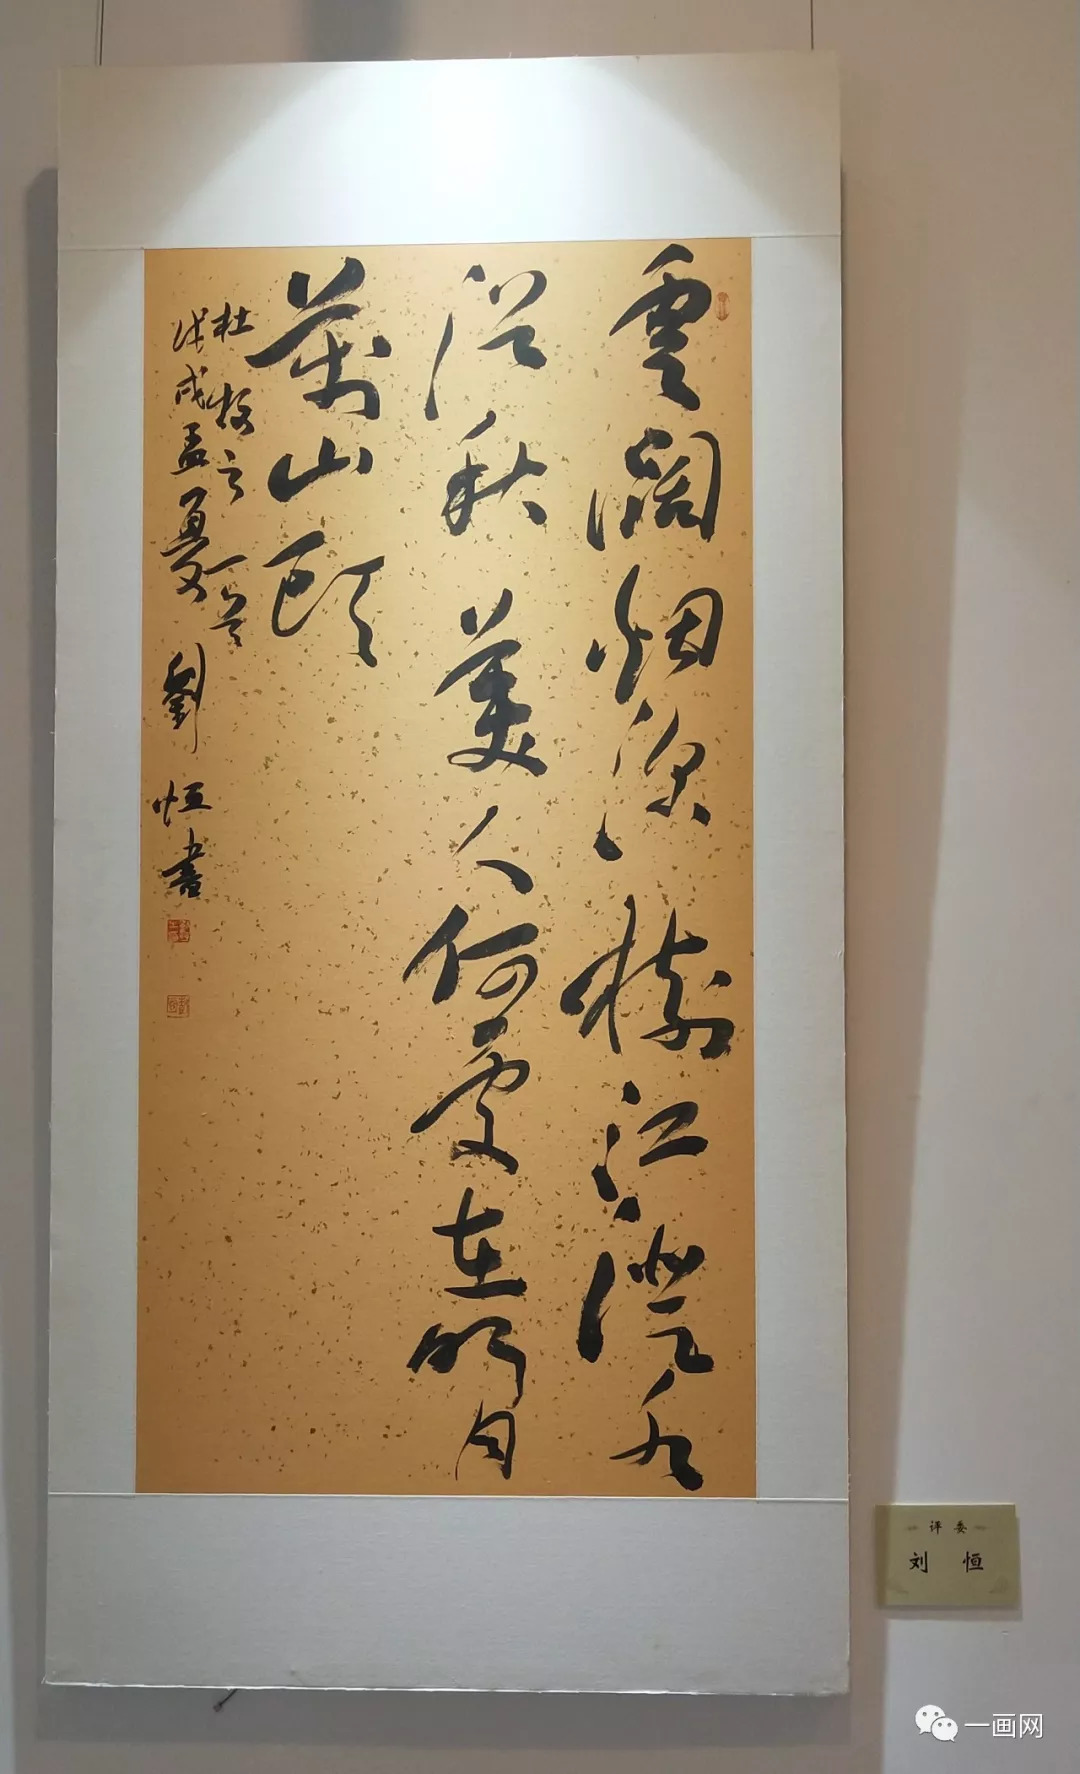 雲闊烟深樹江澄水
浴秋美人何處在明月
萬山頭
杜牧之一首
戊戌孟夏劉恒書
评委
刘恒
一画网